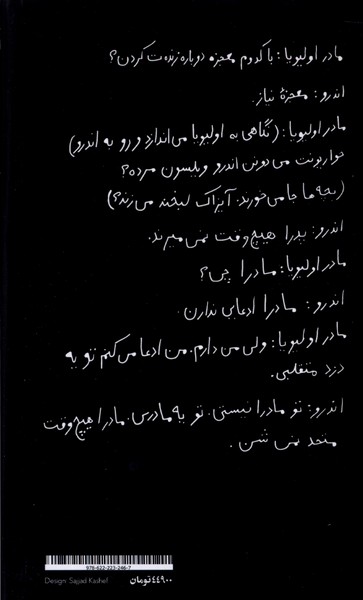 مادر اولیویا: با کدوم معجزه دوباره زنده‌ت کردن؟
اندرو: معجزهٔ نیاز.
مادر اولیویا: (نگاهی به اولیویا می‌اندازد و رو به اندرو)
خوار بودنت می‌دونن اندرو ویلسون مرده؟
(بچه‌ها جا می‌خورند. آیزاک لبخند می‌زند؟)
اندرو: پدرا هیچ‌وقت نمی‌میرند.
مادر اولیویا: مادرا چی؟
اندرو: مادرا ادعایی ندارن.
مادر اولیویا: ولی من دارم. من ادعا می‌کنم تو یه
دزد متقلبی.
اندرو: تو مادرا نیستی. تو یه مادری. مادرا هیچ‌وقت
متحد نمی‌شن.
978-622-223-246-7
Design: Sajjad Kashef
۴۴۹۰۰ تومان